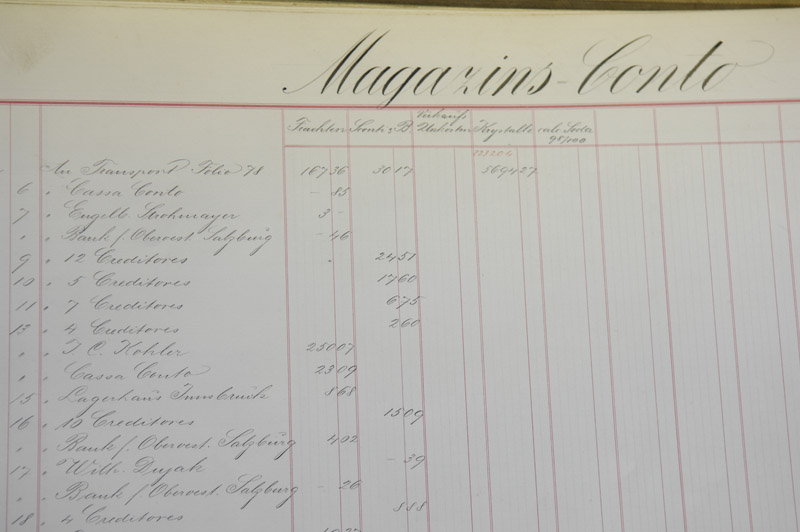 Magazins-Conto
Frachten Sconti Verkaufs Krystallo
98/100
An Transport Folio 78 16736 3017 569427
6 " Cassa Conto - 85
7 " Engelb. Strohmayer 3 -
" " Bank f. Oberoest. Salzburg - 46
9 " 12 Creditores 2451
10 " 5 Creditores 1760
11 " 7 Creditores 675
13 " 4 Creditores 260
" " J. C. Kohler 25007
" " Cassa Conto 2309
15 " Lagerhaus Innsbruck 868
16 " 10 Creditores 1509
" " Bank f. Oberoest. Salzburg 402
17 " Wilh. Dujak - 39
" " Bank f. Oberoest. Salzburg - 26
18 " 4 Creditores 888